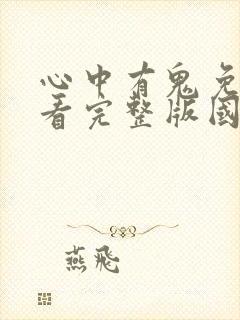 心中有鬼免
看完整版國
燕飛